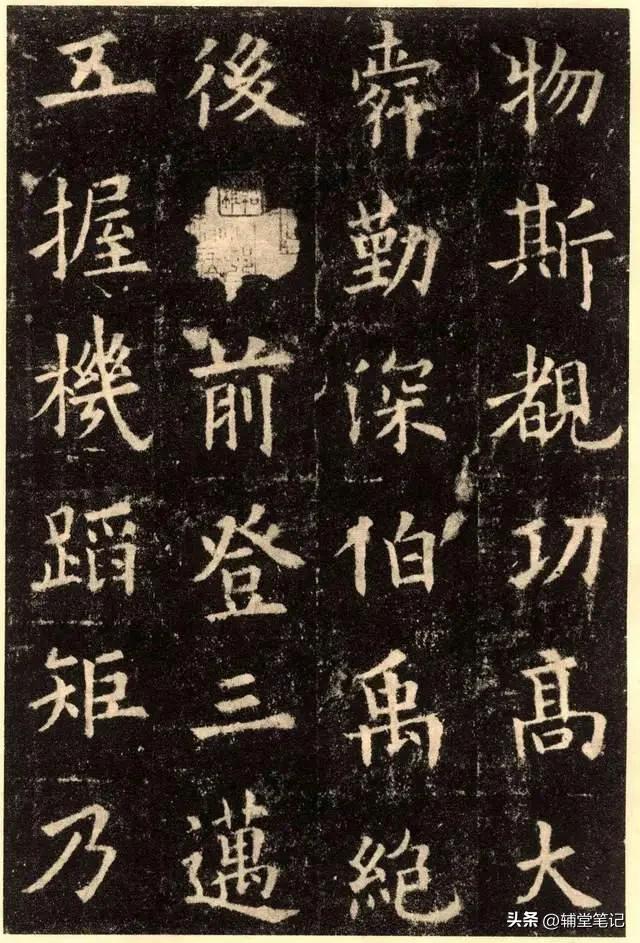 物斯覩功髙大
舜勤深伯禹絶
後前登三邁
五握機蹈矩乃
头条 @辅堂笔记